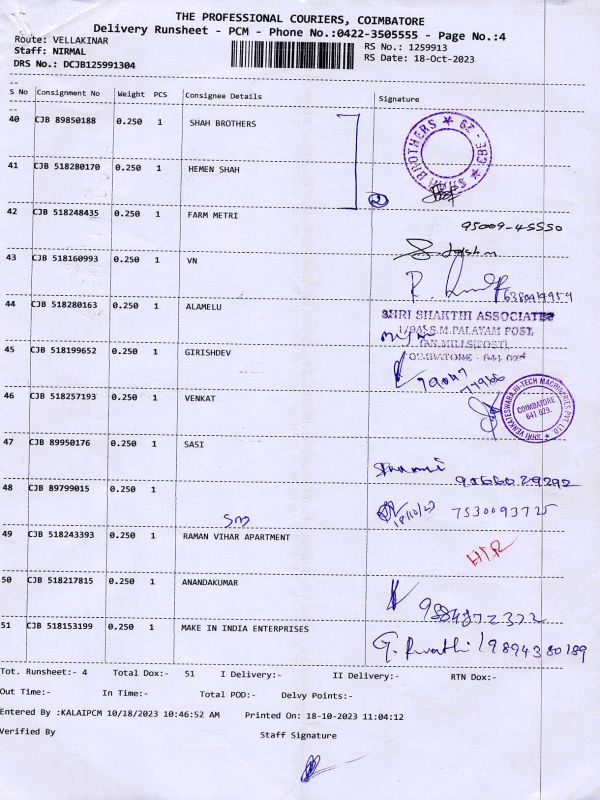 THE PROFESSIONAL COURIERS, COIMBATORE
Delivery Runsheet - PCM - Phone No.:0422-3505555 - Page No.:4
Route: VELLAKINAR
RS No.: 1259913
Staff: NIRMAL
RS Date: 18-Oct-2023
DRS No.: DCJB125991304
S No Consignment No Weight PCS Consignee Details Signature
40 CJB 89850188 0.250 1 SHAH BROTHERS
SHAH BROTHERS ★ CBE - 29 ★
41 CJB 518280170 0.250 1 HEMEN SHAH
2
42 CJB 518248435 0.250 1 FARM METRI
95009-45550
43 CJB 518160993 0.250 1 VN
44 CJB 518280163 0.250 1 ALAMELU
SHRI SHAKTHI ASSOCIATES
S.M.PALAYAM POST,
45 CJB 518199652 0.250 1 GIRISHDEV
COIMBATORE - 641
46 CJB 518257193 0.250 1 VENKAT
SHRI VENKATESWARA HI-TECH MACHINERIES PVT LTD
COIMBATORE
641 029.
47 CJB 89950176 0.250 1 SASI
48 CJB 89799015 0.250 1
18/10/23 7530093725
49 CJB 518243393 0.250 1 RAMAN VIHAR APARTMENT
50 CJB 518217815 0.250 1 ANANDAKUMAR
51 CJB 518153199 0.250 1 MAKE IN INDIA ENTERPRISES
9894380189
Tot. Runsheet:- 4 Total Dox:- 51 I Delivery:- II Delivery:- RTN Dox:-
Out Time:- In Time:- Total POD:- Delvy Points:-
Entered By :KALAIPCM 10/18/2023 10:46:52 AM Printed On: 18-10-2023 11:04:12
Verified By Staff Signature